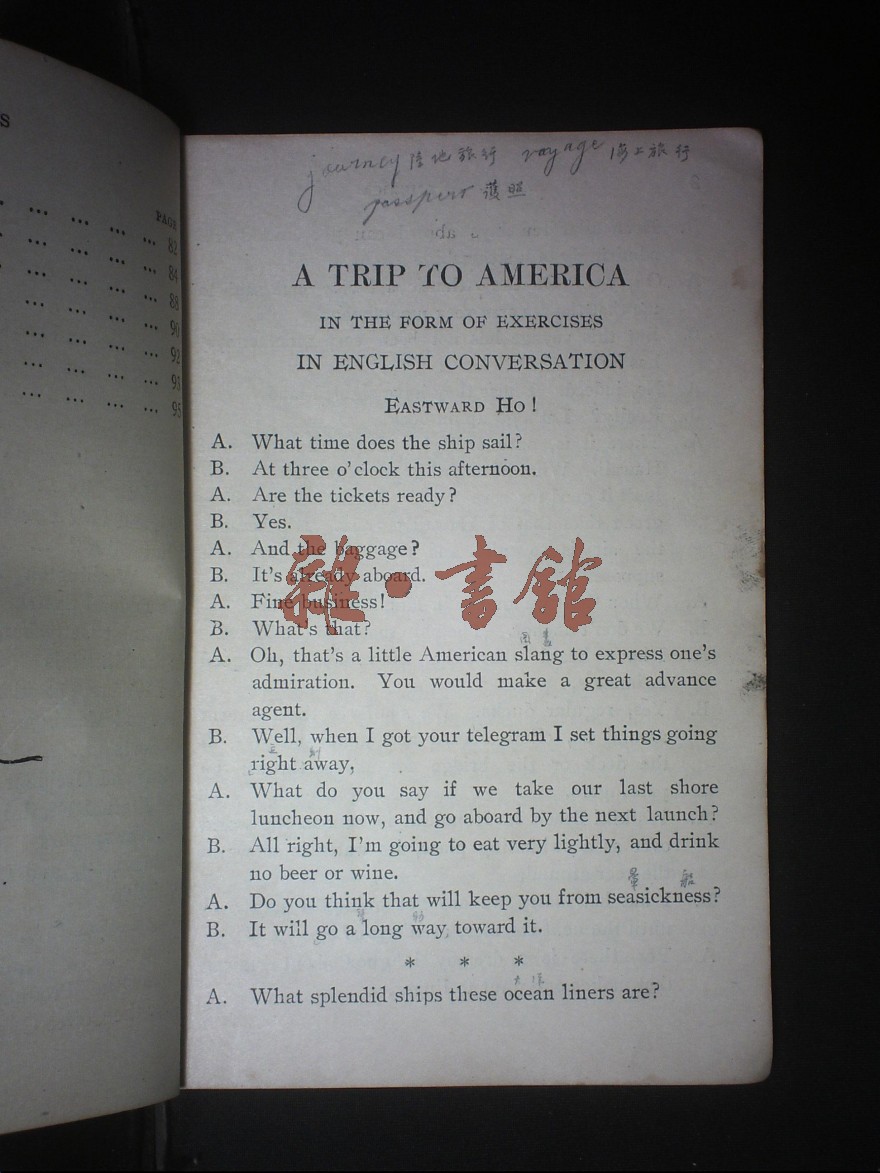 S
PAGE
... ... ... ... 82
... ... ... ... 84
... ... ... ... 88
... ... ... 90
... ... ... ... 92
... ... ... ... 93
... ... ... ... 95
journey 陸地旅行 voyage 海上旅行
passport 護照
A TRIP TO AMERICA
IN THE FORM OF EXERCISES
IN ENGLISH CONVERSATION
EASTWARD HO!
A. What time does the ship sail?
B. At three o'clock this afternoon.
A. Are the tickets ready?
B. Yes.
A. And the baggage?
B. It's already aboard.
雜·書館
A. Fine business!
B. What's that?
A. Oh, that's a little American slang to express one's
admiration. You would make a great advance
agent.
B. Well, when I got your telegram I set things going
立刻
right away,
A. What do you say if we take our last shore
luncheon now, and go aboard by the next launch?
B. All right, I'm going to eat very lightly, and drink
no beer or wine.
暈船
A. Do you think that will keep you from seasickness?
B. It will go a long way toward it.
* * *
大洋
A. What splendid ships these ocean liners are?